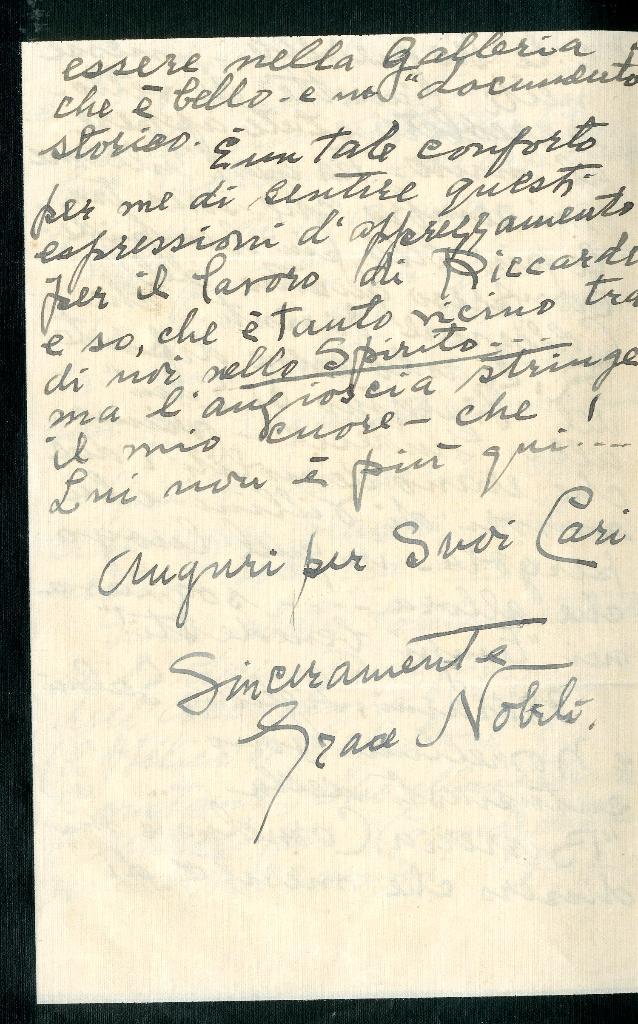 essere nella Galleria
che è bello - e un "documento
storico. È un tale conforto
per me di sentire questi
espressioni d'apprezzamento
per il lavoro di Riccardo
e so, che è tanto vicino tra
di noi nello Spirito---
ma l'angioscia stringe
il mio cuore - che !
Lui non è più qui....
Auguri per Suoi Cari
Sinceramente
Grace Nobili.